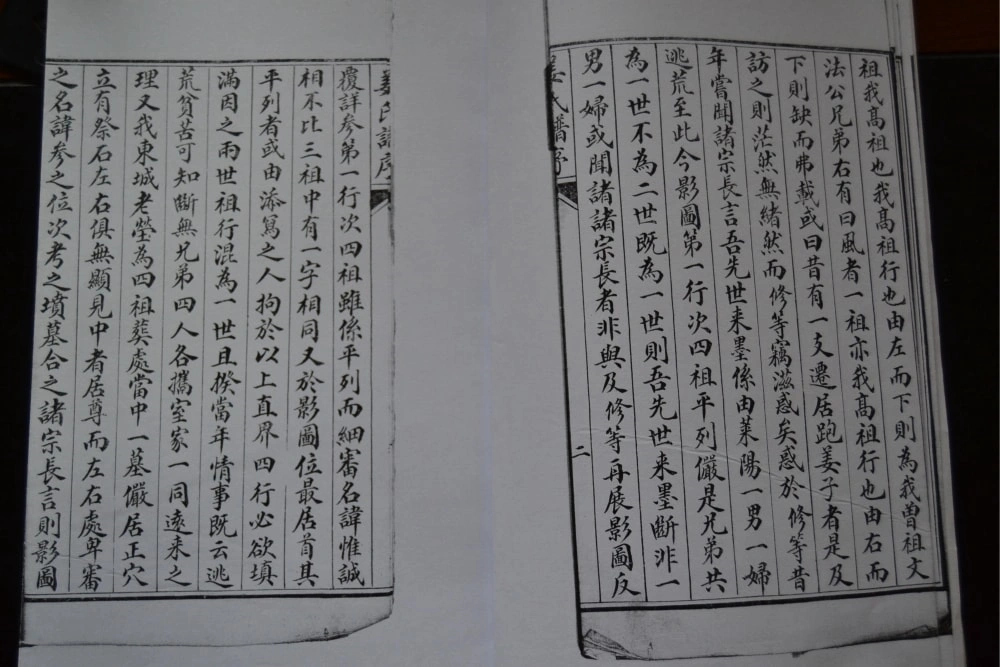 祖我高祖也我高祖行也由左而下則為我曾祖文
法公兄弟右有曰風者一祖亦我高祖行也由右而
下則缺而弗載或曰昔有一支遷居跑姜子者是及
訪之則茫然無緒然而修等竊滋惑矣惑於修等昔
年嘗聞諸宗長言吾先世来墨係由莱陽一男一婦
逃荒至此今影圖第一行次四祖平列儼是兄弟共
為一世不為二世既為一世則吾先世来墨斷非一
男一婦或聞諸諸宗長者非與及修等再展影圖反
姜氏譜序
二
姜氏譜序
覆詳參第一行次四祖雖係平列而細審名諱惟誠
相不比三祖中有一字相同又於影圖位最居首其
平列者或由添寫之人拘於以上直界四行必欲填
滿因之兩世祖行混為一世且揆當年情事既云逃
荒貧苦可知斷無兄弟四人各攜室家一同逺来之
理又我東城老塋為四祖葬處當中一墓儼居正穴
立有祭石左右俱無顯見中者居尊而左右處卑審
之名諱參之位次考之墳墓合之諸宗長言則影圖